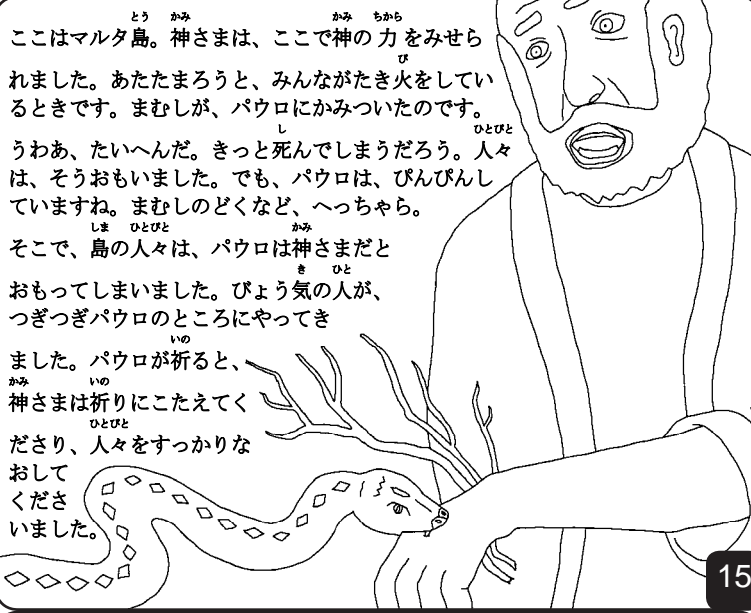 ここはマルタ島。神さまは、ここで神の力をみせら
れました。あたたまろうと、みんながたき火をしてい
るときです。まむしが、パウロにかみついたのです。
うわあ、たいへんだ。きっと死んでしまうだろう。人々
は、そうおもいました。でも、パウロは、ぴんぴんし
ていますね。まむしのどくなど、へっちゃら。
そこで、島の人々は、パウロは神さまだと
おもってしまいました。びょう気の人が、
つぎつぎパウロのところにやってき
ました。パウロが祈ると、
神さまは祈りにこたえてく
ださり、人々をすっかりな
おして
くださ
いました。
15